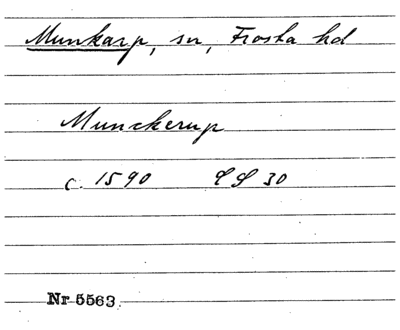 Munkarp, sn, Frosta hd
Munckerup
c. 1590 LS 30
Nr 5563